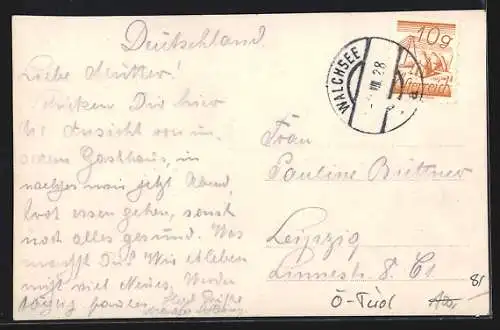 Deutschland
Liebe Mutter!
Schicken Dir hier
die Ansicht von un
serem Gasthaus, in
welches wir jetzt Abend
brot essen gehen, sonst
noch alles gesund. Was
machst Du? Wir erleben
nicht viel Neues. Werden
Herzl. Grüße
WALCHSEE
VIII 28
10g
Österreich
Frau
Pauline Büttner
Leipzig
Linnestr. 8. Ct.
81
Ö-Tirol